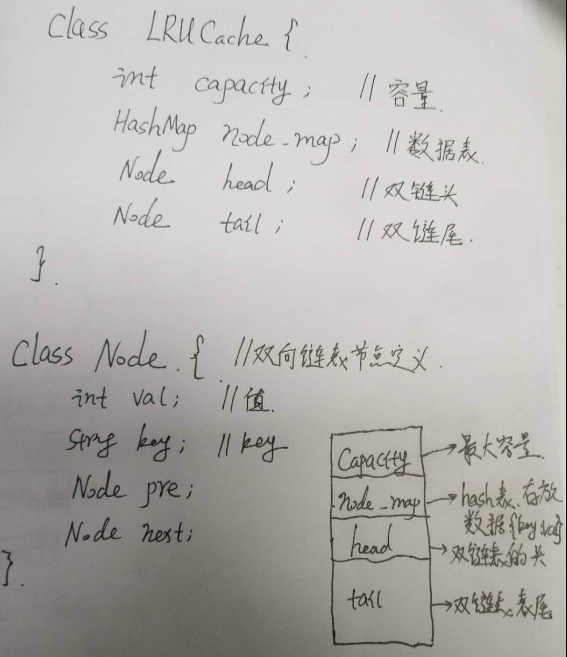 Class LRUCache {
int capacity; //容量.
HashMap node_map; //数据表.
Node head; //双链头
Node tail; //双链尾.
}.
Class Node { //双向链表节点定义.
int val; //值.
String key; //key
Node pre;
Node next;
}.
Capacity →最大容量.
node_map →hash表,存放
数据{key,val}
head →双链表的头
tail →双链表表尾